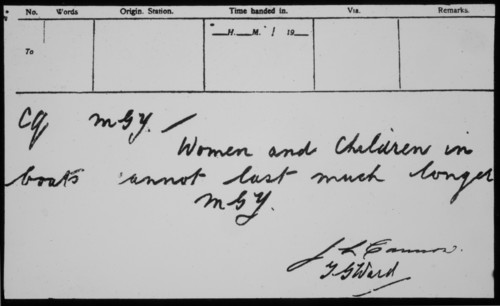 No. Words Origin. Station. Time handed in. Via. Remarks.
To
H. M. 19
CQ MGY. /
Women and Children in
boats 'annot last much longer
MGY.
J L Cannon.
T G Ward